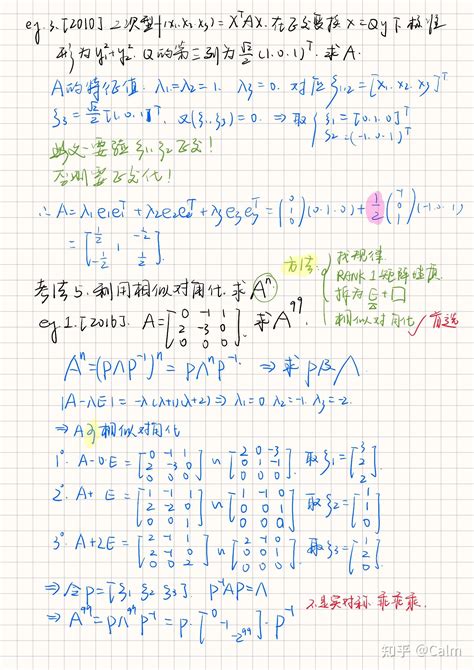 eg.3.[2010] 二次型f(x₁.x₂.x₃)=XᵀAX.在正交变换x=Qy下标准
形为y₁²+y₂². Q的第三列为√2/2(1.0.1)ᵀ.求A.
A的特征值. λ₁=λ₂=1. λ₃=0. 对应ξ₁,₂=[x₁.x₂.x₃]ᵀ
ξ₃=√2/2[1.0.1]ᵀ. 又(ξ₁.ξ₃)=0. ⇒ 取{ξ₁=[0.1.0]ᵀ
ξ₂=(-1.0.1)ᵀ
此处一定要验ξ₁.ξ₂正交!
否则要正交化!
∴A=λ₁e₁e₁ᵀ+λ₂e₂e₂ᵀ+λ₃e₃e₃ᵀ=(0 1 0)(0.1.0)+1/2(-1 0 1)(-1.0.1)
=[1/2 -1/2
1
-1/2 1/2].
方法: {找规律
RANK 1矩阵
拆为E+□
相似对角化 首选
考法5.利用相似对角化.求Aⁿ.
eg.1.[2016]. A=[0 -1 1
2 -3 0
0 0 0]. 求A⁹⁹
Aⁿ=(PΛP⁻¹)ⁿ=PΛⁿP⁻¹. ⇒ 求P及Λ.
|A-λE|=-λ(λ+1)(λ+2)⇒λ₁=0 λ₂=-1. λ₃=-2.
⇒A可相似对角化
1° A-0·E=[0 -1 1
2 -3 0
0 0 0] ~ [2 0 -3
0 1 -1
0 0 0] 取ξ₁=[3
2
2]
2° A+E=[1 -1 1
2 -2 0
0 0 1] ~ [1 -1 0
0 0 1
0 0 0] 取ξ₂=[1
1
0]
3° A+2E=[2 -1 1
2 -1 0
0 0 2] ~ [2 -1 0
0 0 1
0 0 0] 取ξ₃=[1
2
0]
⇒令P=[ξ₁ ξ₂ ξ₃]. P⁻¹AP=Λ
⇒A⁹⁹=PΛ⁹⁹P⁻¹=P·[0 -1 -2⁹⁹]·P⁻¹
不是实对称 乖乖乖.
知乎 @Calm